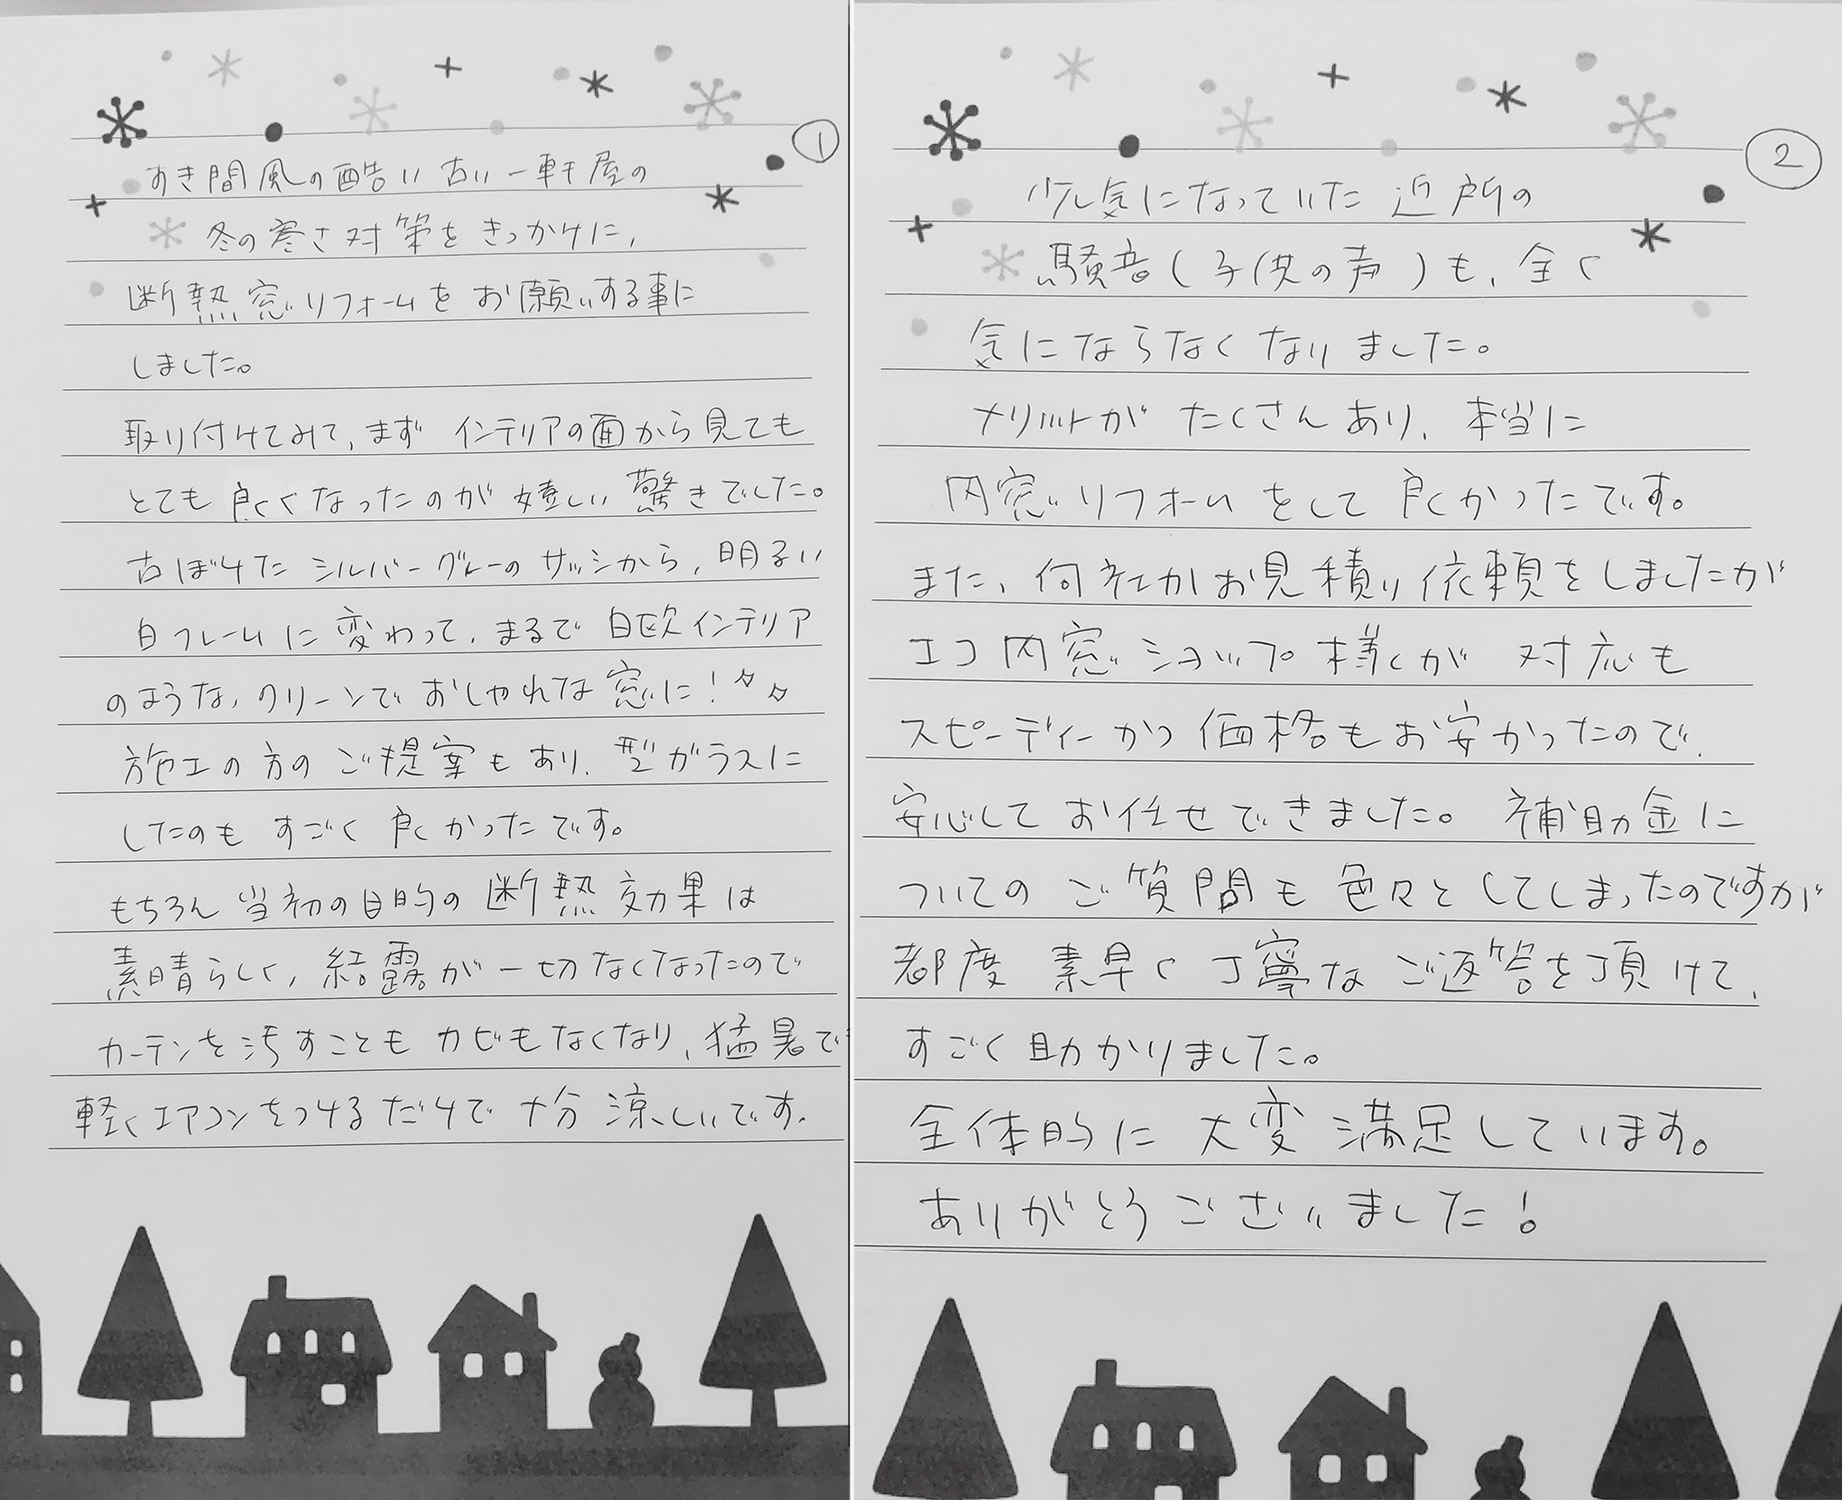 ①
すき間風の酷い古い一軒屋の
冬の寒さ対策をきっかけに,
断熱窓リフォームをお願いする事に
しました。
取り付けてみて、まず インテリアの面から見ても
とても良くなったのが嬉しい驚きでした。
古ぼけたシルバーグレーのサッシから、明るい
白フレームに変わって、まるで北欧インテリア
のような、クリーンでおしゃれな窓に!
施工の方のご提案もあり、型ガラスに
したのもすごく良かったです。
もちろん当初の目的の断熱効果は
素晴らしく、結露が一切なくなったので
カーテンを汚すこともカビもなくなり、猛暑で
軽くエアコンをつけるだけで十分涼しいです。
②
少し気になっていた近所の
騒音(子供の声)も、全く
気にならなくなりました。
メリットがたくさんあり、本当に
内窓リフォームをして良かったです。
また、何社かお見積り依頼をしましたが
エコ内窓ショップ様が対応も
スピーディーかつ価格もお安かったので、
安心してお任せできました。補助金に
ついてのご質問も色々としてしまったのですが
都度素早く丁寧なご返答を頂けて、
すごく助かりました。
全体的に大変満足しています。
ありがとうございました!